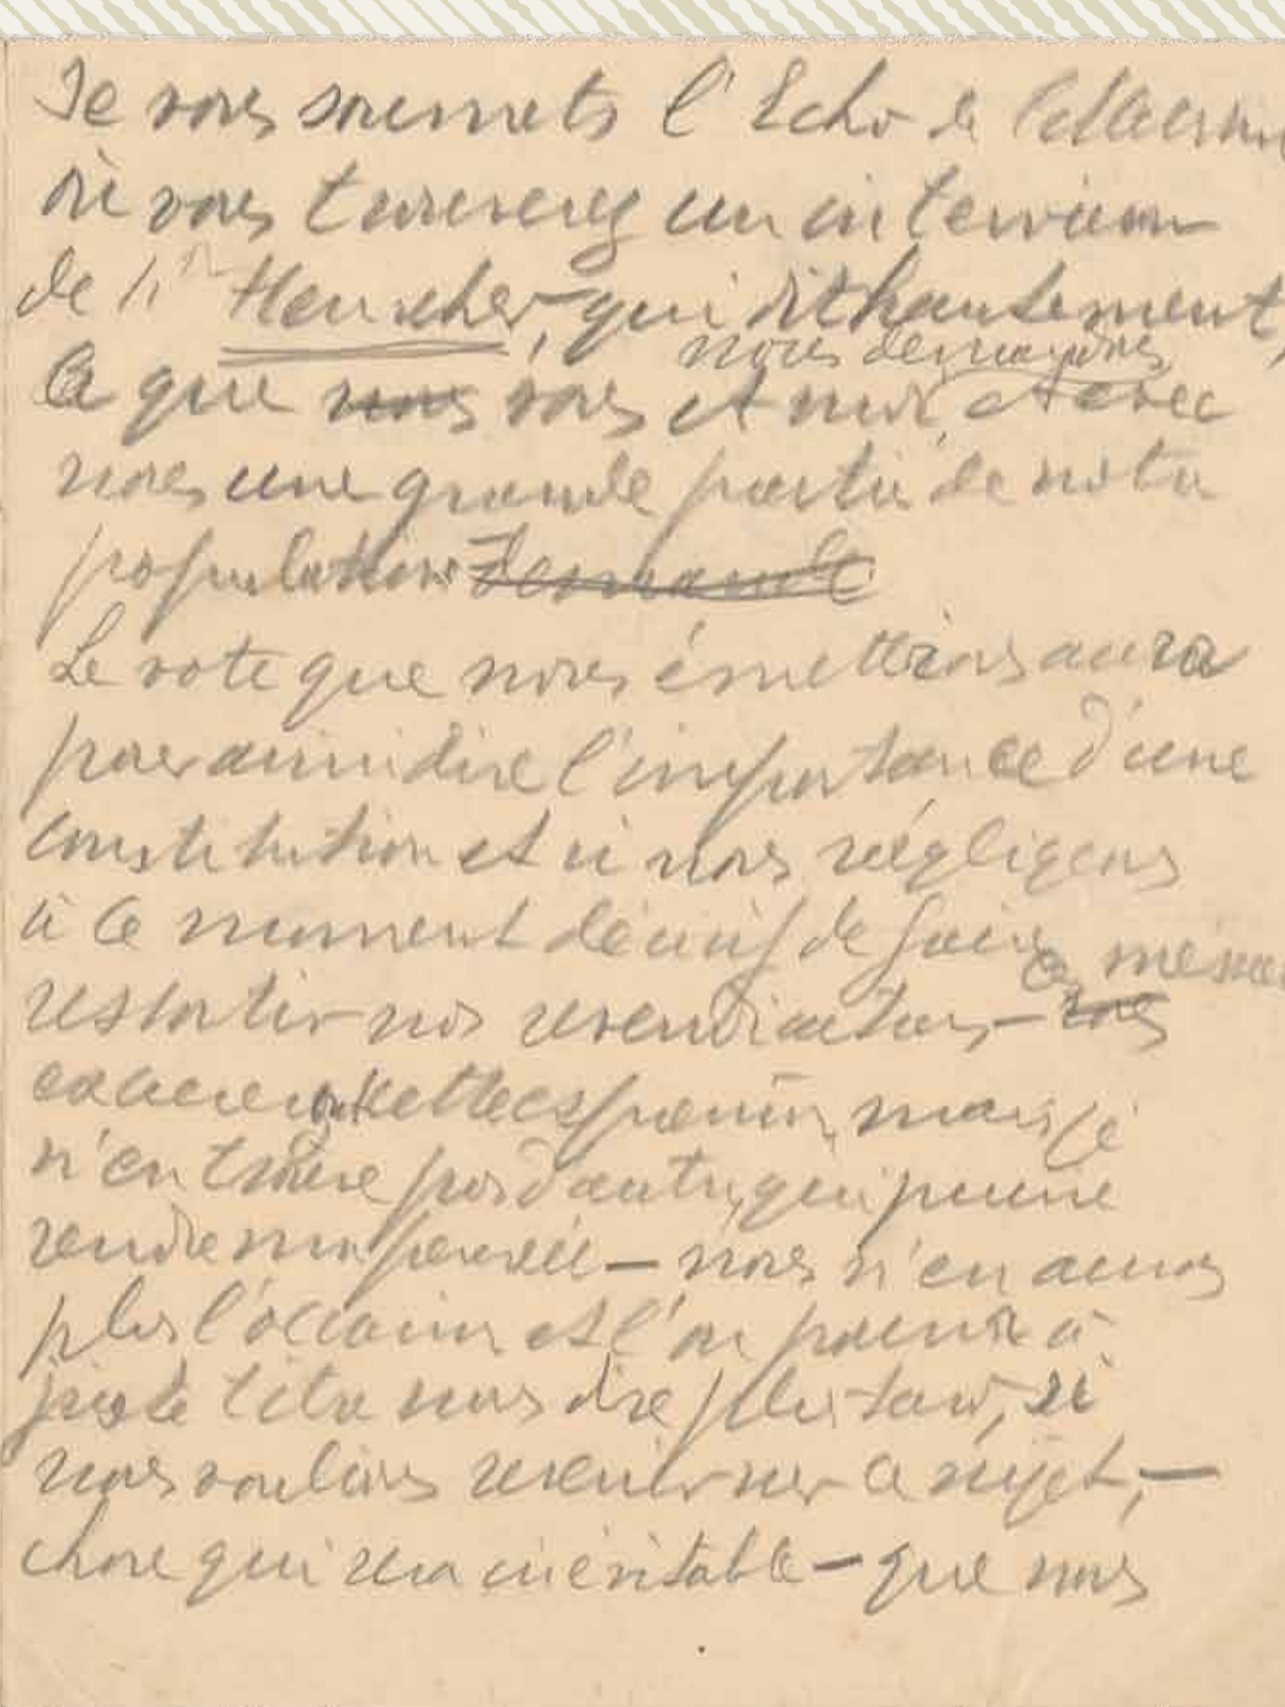 Je vous soumets l'Echo de
où vous trouverez un interview
de Mr Heuscher, qui dit hautement,
nous demandons
Ce que nous vous et moi, et avec
nous une grande partie de notre
population demande
Le vote que nous émettrons aura
pour ainsi dire l'importance d'une
constitution et si nous négligons
à ce moment décisif de faire
ressortir nos revendications – ces mêmes
pression, mais je
n'en trouve pas d'autre, qui puisse
rendre ma pensée – nous n'en aurons
plus l'occasion et l'on pourra à
juste titre nous dire plus tard, si
nous voulions revenir sur ce sujet, –
chose qui sera inévitable – que nous